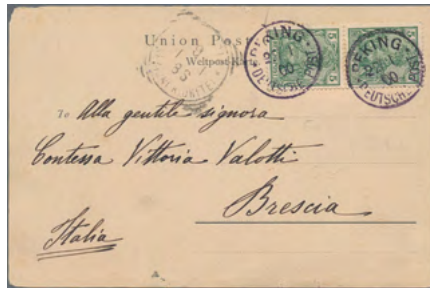 Union Post
Weltpost-Karte
PEKING
DEUTSCHE POST
PEKING
DEUTSCHE POST
5 5 5
To Alla gentile signora
Contessa Vittoria Valotti
Brescia
Italia